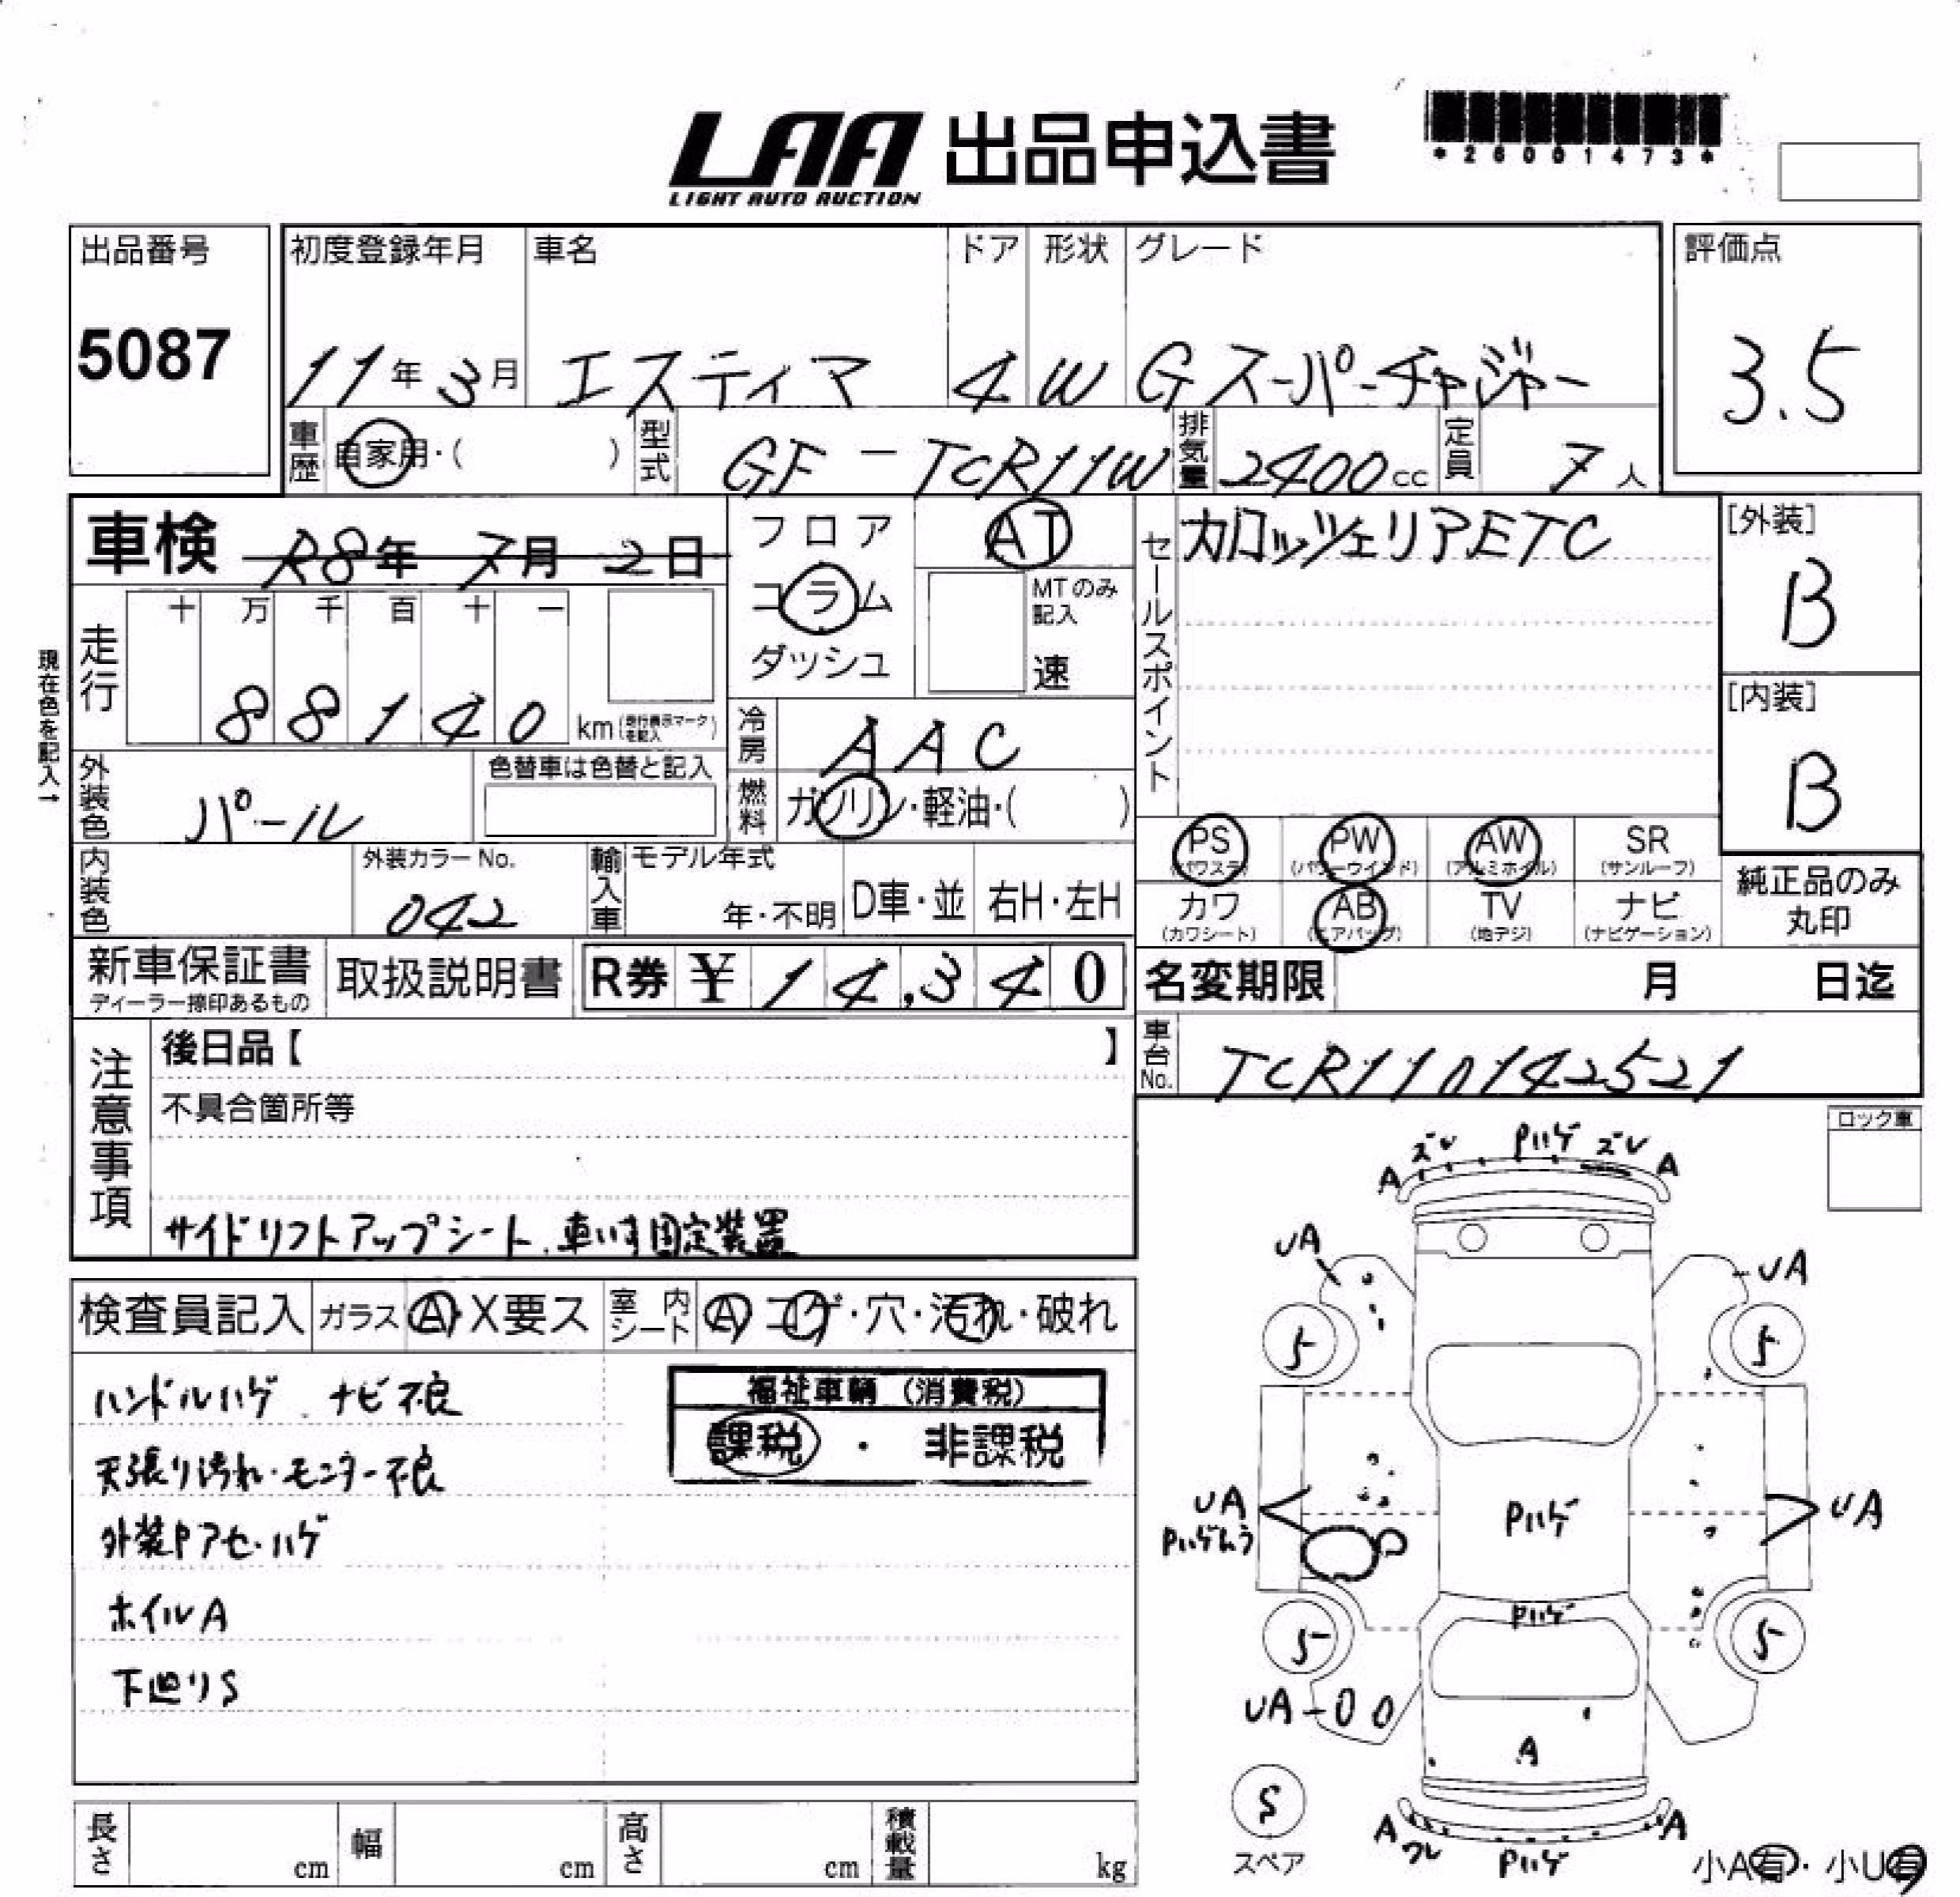 LAA 出品申込書
LIGHT AUTO AUCTION
*26001473*
出品番号 初度登録年月 車名 ドア 形状 グレード 評価点
5087 11年3月 エスティマ 4 W Gスーパーチャジャー 3.5
車歴 自家用・( ) 型式 GF-TCR11W 排気量 2400cc 定員 7人
車検 R8年7月2日 フロア AT セールスポイント カロッツェリアETC [外装]
コラム MTのみ記入 B
ダッシュ 速
現在色を記入→
走行 十 万 千 百 十 一
88140 km (走行表示マークを記入) [内装]
冷房 AAC B
外装色 パール 色替車は色替と記入 燃料 ガソリン・軽油・( )
PS (パワステ) PW (パワーウインド) AW (アルミホイル) SR (サンルーフ) 純正品のみ丸印
内装色 外装カラーNo. 042 輸入車 モデル年式 年・不明 D車・並 右H・左H
カワ (カワシート) AB (エアバッグ) TV (地デジ) ナビ (ナビゲーション)
新車保証書 ディーラー捺印あるもの 取扱説明書 R券 ¥14,340 名変期限 月 日迄
車台No. TCR110142521
注意事項 後日品【 】
不具合箇所等
サイドリフトアップシート、車いす固定装置
ロック車
検査員記入 ガラス A・X要ス 室内シート A コゲ・穴・汚れ・破れ
ハンドルハゲ ナビ不良
福祉車輌 (消費税)
課税 ・ 非課税
天張り汚れ・モニター不良
外装Pアセ・ハゲ
ホイルA
下廻りS
A ズレ Pハゲ ズレ A
UA UA
5 5
UA Pハゲ UA
Pハゲムラ
Pハゲ
5 5
UA
A
S
スペア
A ワレ Pハゲ A
小A有・小U有
長さ cm 幅 cm 高さ cm 積載量 kg